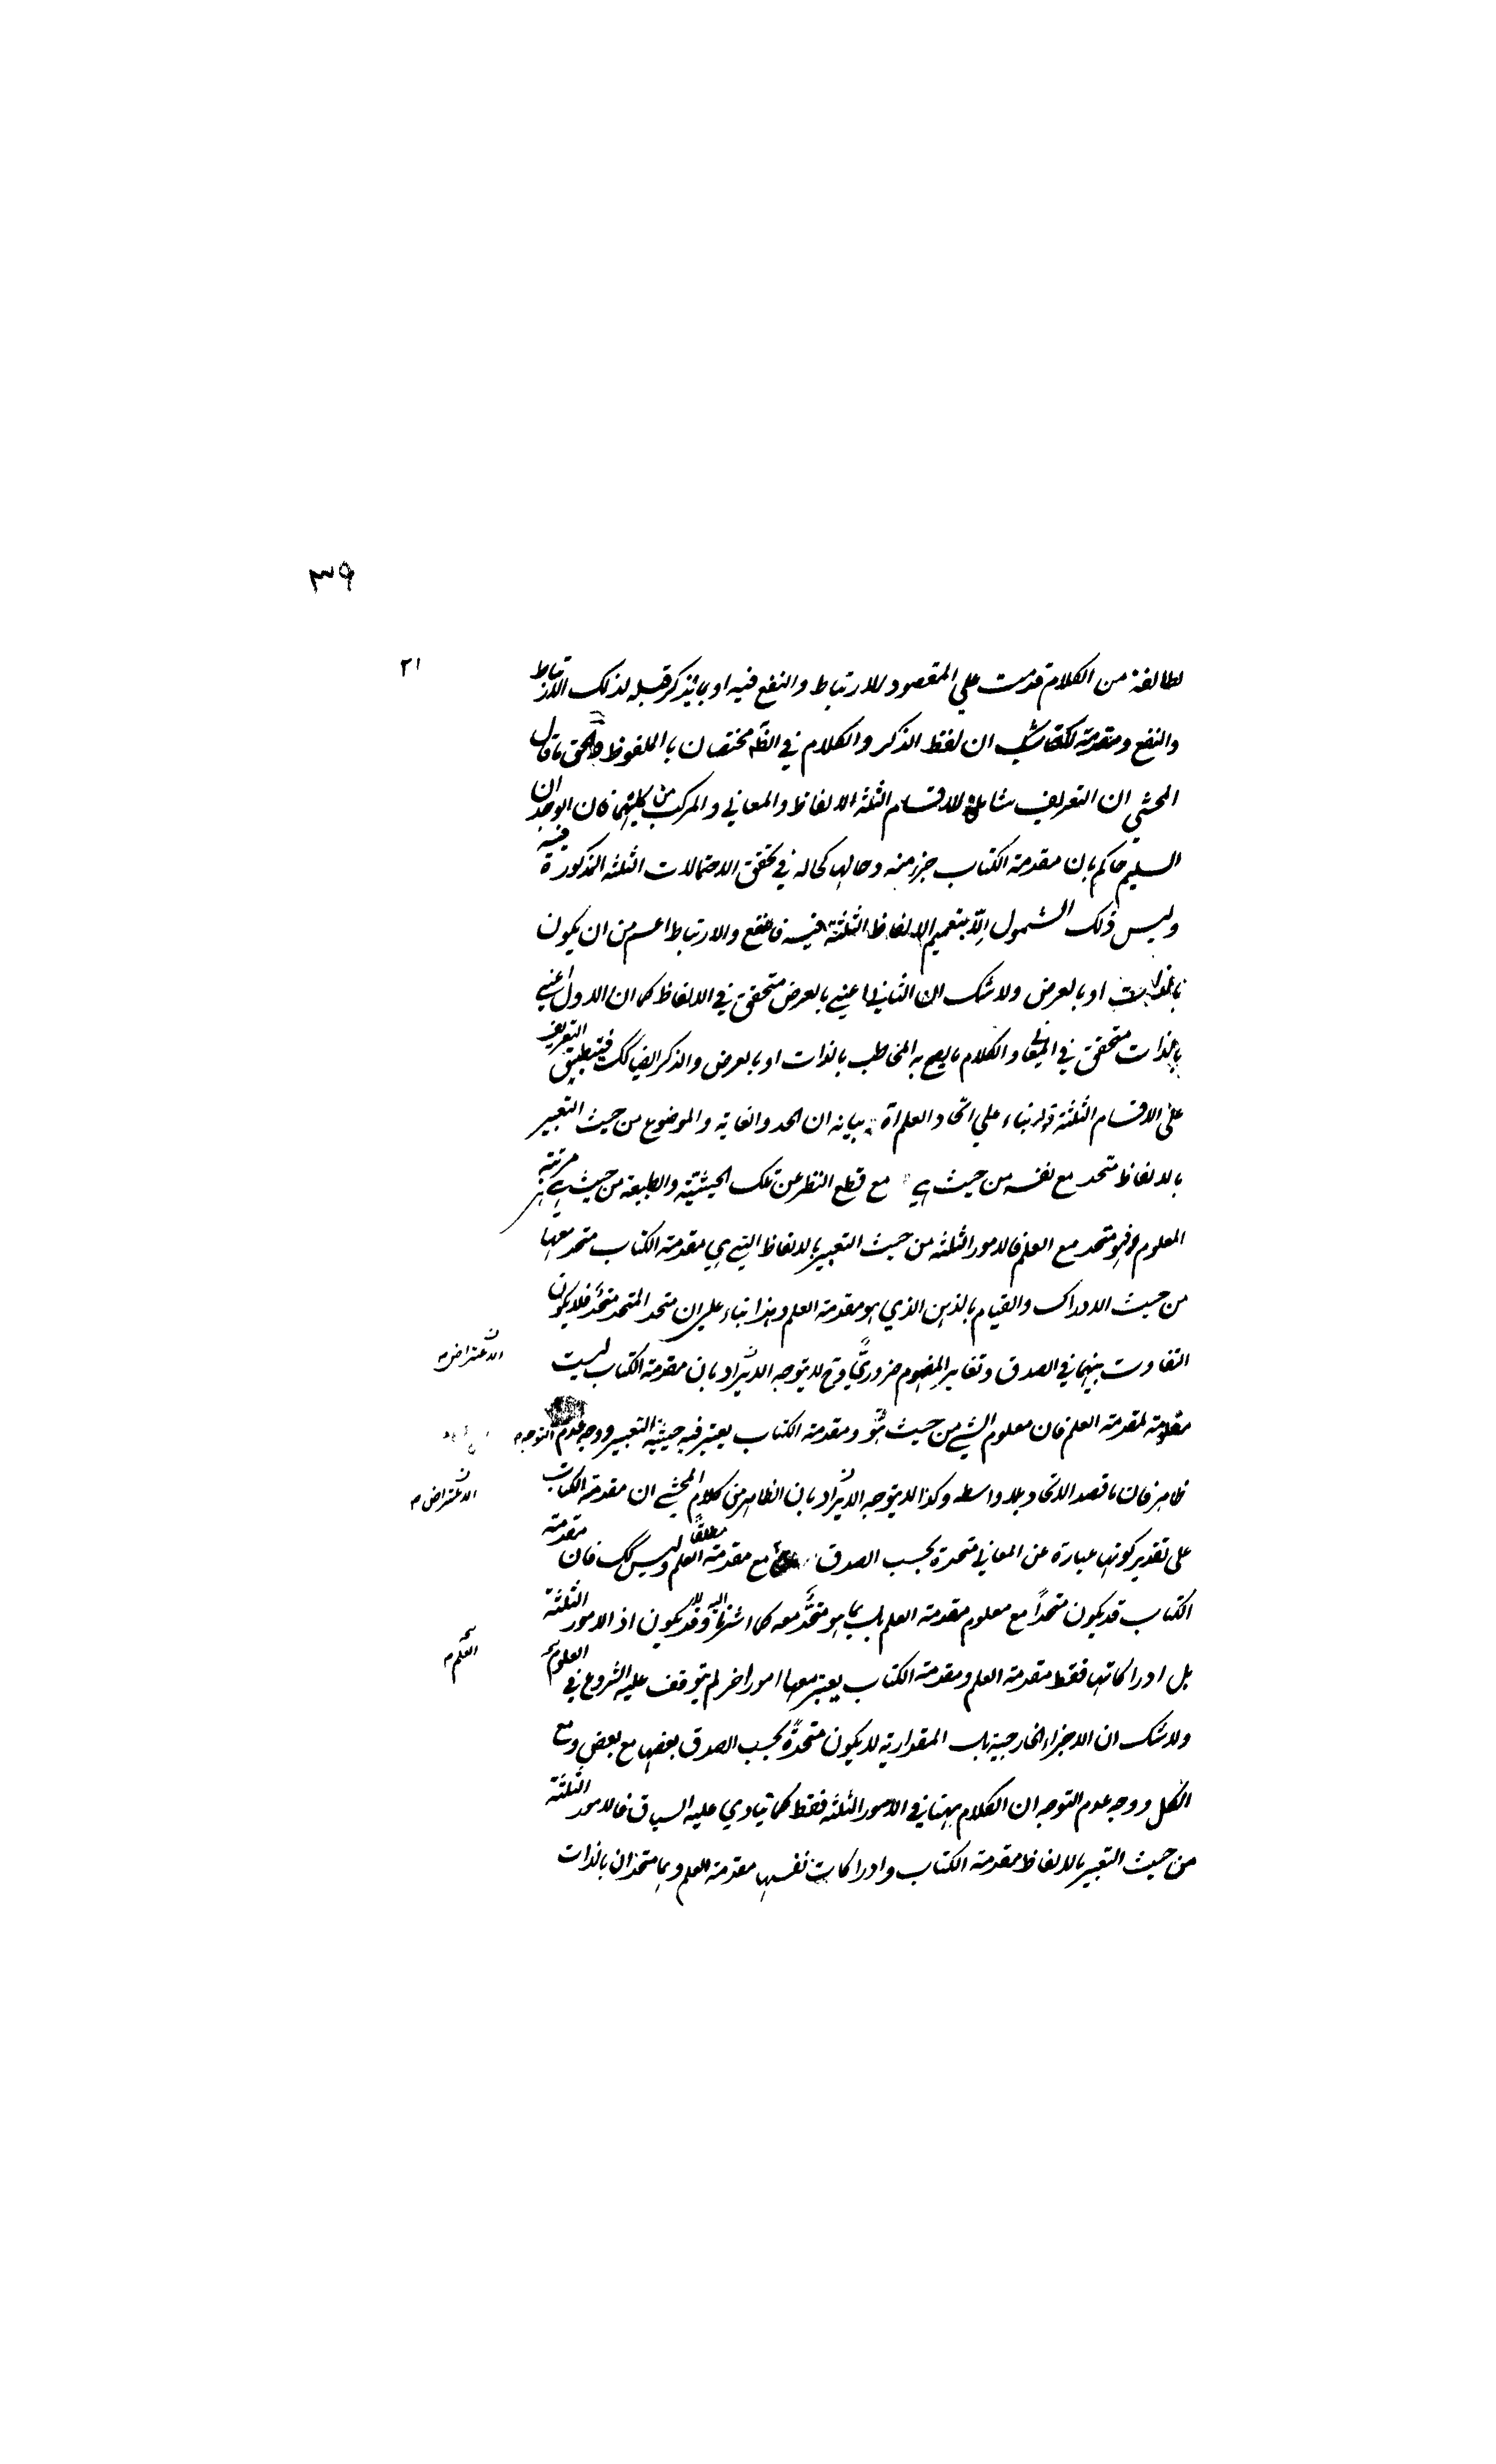 ٣٩
٢١
لطائفة من الكلام قدمت على المقصود للارتباط والنفع فيه او بما يذكر قبله لذلك الارتباط
والنفع ومقدمة ان لفظ الذكر والكلام في الظ مختصان بالملفوظ والحق ما قال
المحشي ان التعريف شامل للاقسام الثلثة الالفاظ والمعاني والمركب من كليهما فان الوجدان
السليم حاكم بان مقدمة الكتاب جزء منه وحالها كحاله في تحقق الاحتمالات الثلثة المذكورة فيه
وليس ذلك الشمول الا بتعميم الالفاظ الثلثة فيه فالنفع والارتباط اعم من ان يكون
بالذات او بالعرض ولا شك ان الثاني اعني بالعرض متحقق في الالفاظ كما ان الاول اعني
بالذات متحقق في المعاني والكلام ما يصح به المخاطب بالذات او بالعرض والذكر ايضا كك فينطبق التعريف
على الاقسام الثلثة قوله بناء على اتحاد العلم اه بيانه ان الحد والغاية والموضوع من حيث التعبير
بالالفاظ متحد مع نفسه من حيث هي مع قطع النظر عن تلك الحيثية والطبيعة من حيث هي مرتبة
المعلوم فهو متحد مع العلم فالامور الثلثة من حيث التعبير بالالفاظ التي هي مقدمة الكتاب متحد معها
من حيث الادراك والقيام بالذهن الذي هو مقدمة العلم وهذا بناء على ان متحد المتحد متحد فلا يكون
التفاوت بينهما في الصدق وتغاير المفهوم ضروري وح لا يتوجه الايراد بان مقدمة الكتاب ليست
الاعتراض م
معلومة لمقدمة العلم فان معلوم الشي من حيث هو ومقدمة الكتاب يعتبر فيه حيثية التعبير ووجه عدم التوجه
ظاهر فان ما قصد الاتحاد بلا واسطه وكذا لا يتوجه الايراد بان الظاهر من كلام المحشي ان مقدمة الكتاب
الاعتراض م
على تقدير كونها عبارة عن المعاني متحدة بحسب الصدق مع مقدمة العلم مطلقا وليس كك فان مقدمة
الكتاب قد يكون متحدا مع معلوم مقدمة العلم بما هو متحد معه كما اشرنا اليه وقد لا يكون اذ الامور الثلثة
بل ادراكاتها فقط مقدمة العلم ومقدمة الكتاب يعتبر معها امور اخر لم يتوقف عليه الشروع في العلوم
العلم م
ولا شك ان الاجزاء الخارجية بل المقدارية لا يكون متحدة بحسب الصدق بعضها مع بعض ومع
الكل ووجه عدم التوجه ان الكلام ههنا في الامور الثلثة فقط كما ينادي عليه السياق فالامور الثلثة
من حيث التعبير بالالفاظ مقدمة الكتاب وادراكات نفسها مقدمة العلم وهما متحدان بالذات